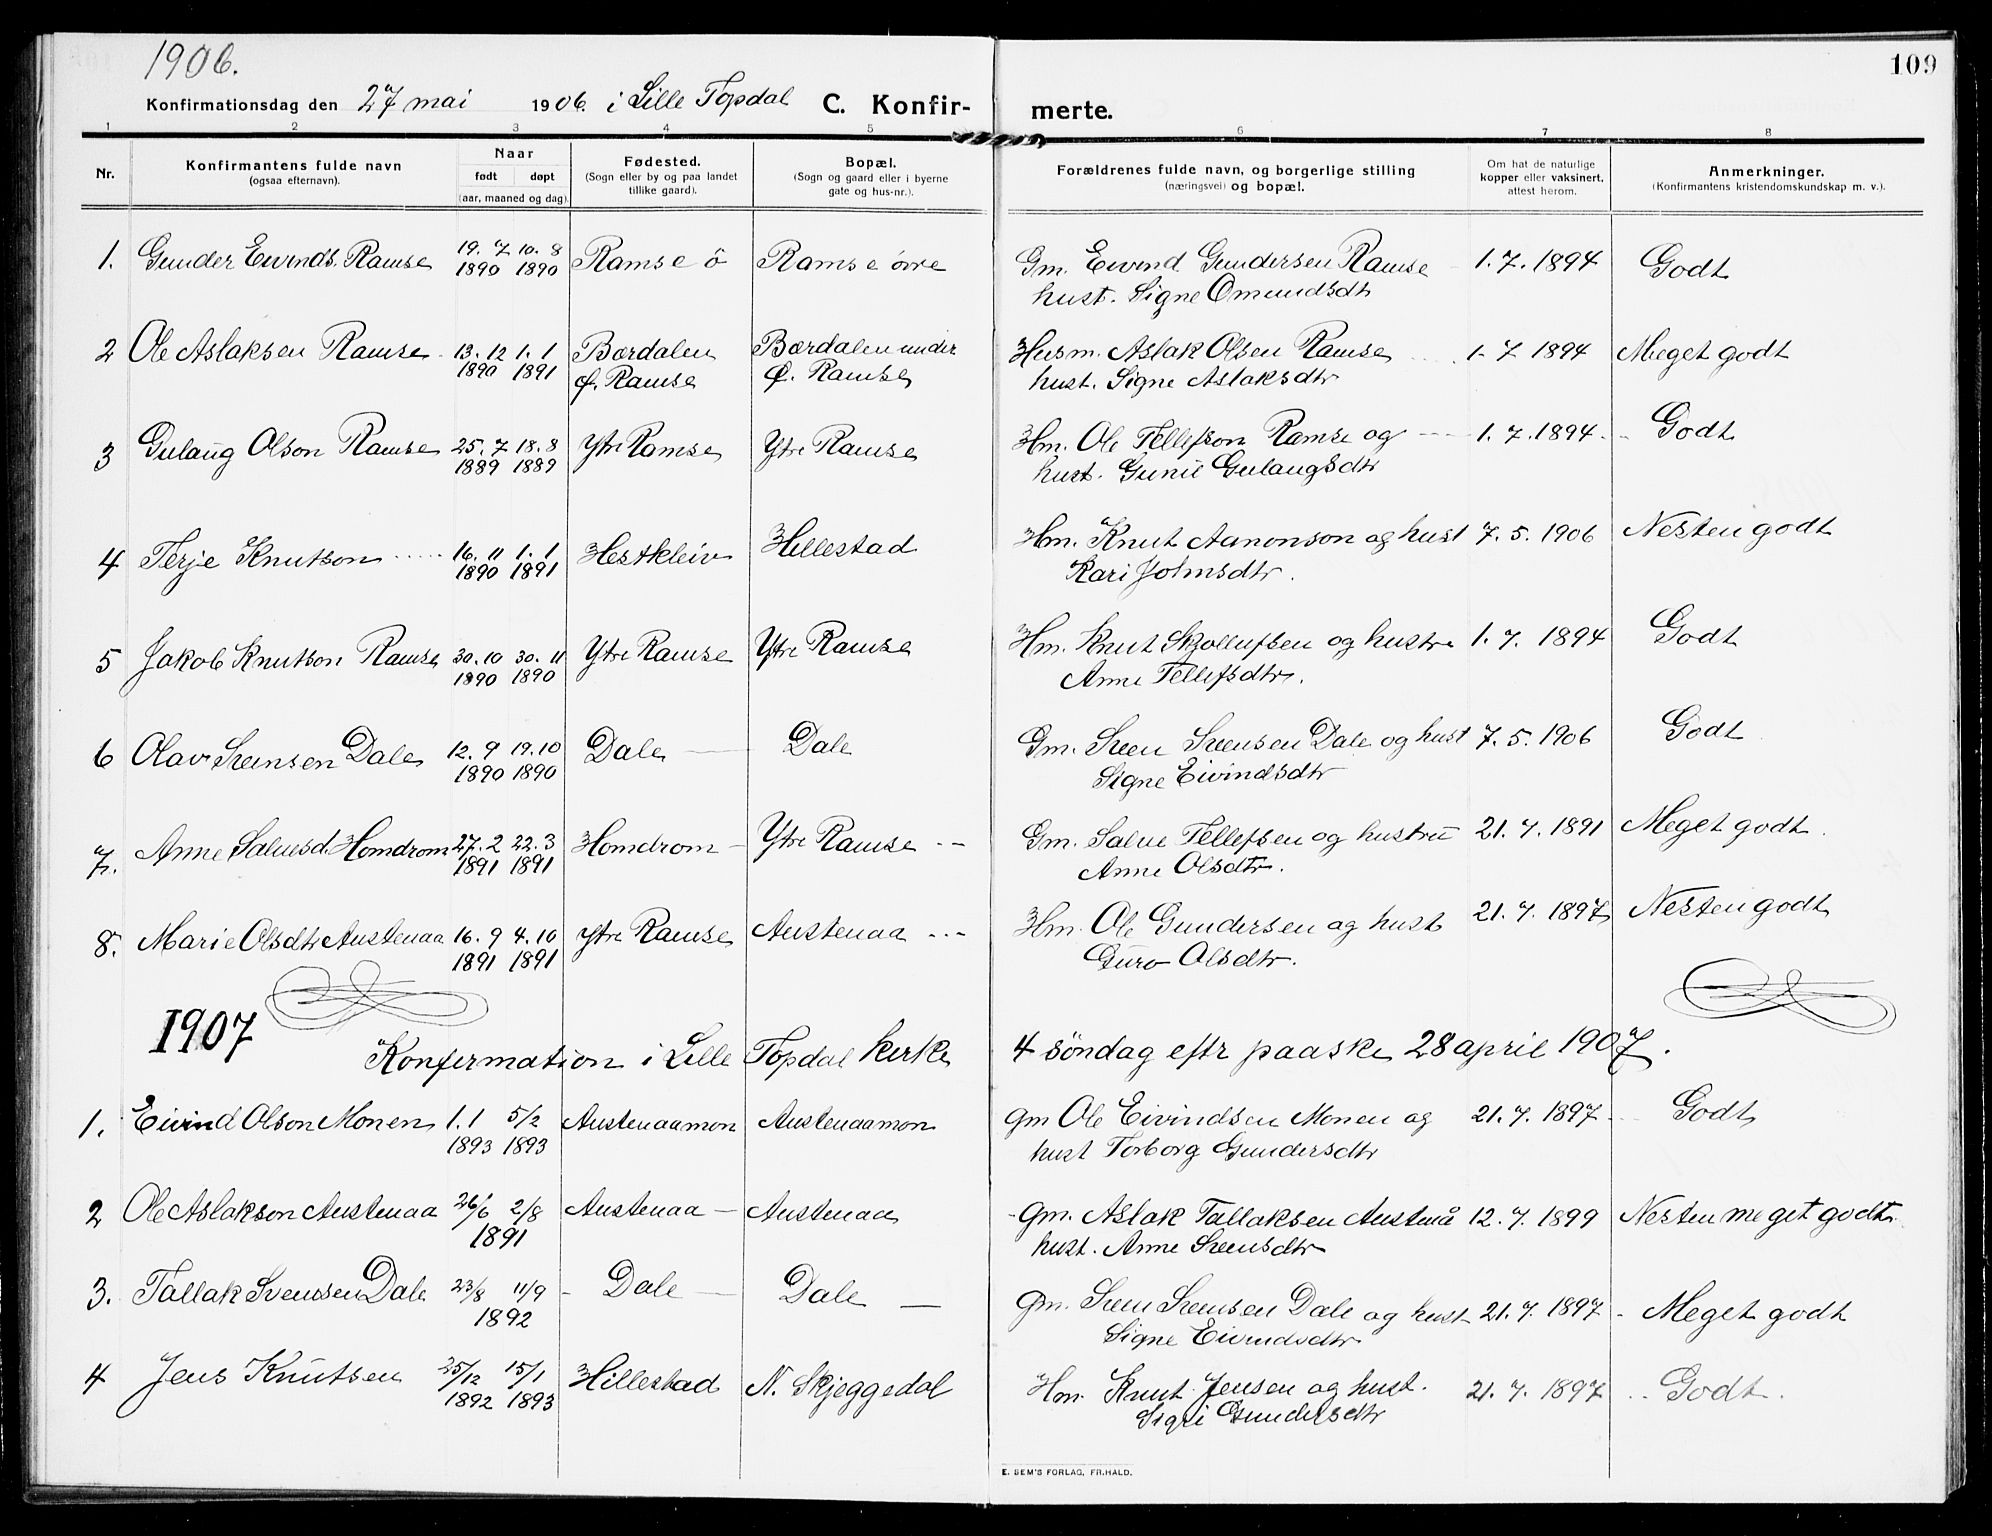 1906.
109
Konfirmationsdag den 27 mai 1906. i Lille Topdal C. Konfir- merte.
1 2 3 4 5 6 7 8
Nr.
Konfirmantens fulde navn
(ogsaa efternavn).
Naar
født døpt
(aar, maaned og dag).
Fødested.
(Sogn eller by og paa landet
tillike gaard).
Bopæl.
(Sogn og gaard eller i byerne
gate og hus-nr.).
Forældrenes fulde navn, og borgerlige stilling
(næringsvei) og bopæl.
Om hat de naturlige
kopper eller vaksinert,
attest herom.
Anmerkninger.
(Konfirmantens kristendomskundskap m. v.).
1. Gunder Eivinds. Ramse 19. 7 10. 8 Ramse ö Ramse övre Gm. Eivind Gundersen Ramse 1. 7. 1894 Godt
1890 1890 hust. Signe Omundsdtr
2 Ole Aslaksen Ramse 13. 12 1. 1 Bærdalen Bærdalen under Husm. Aslak Olsen Ramse 1. 7 1894 Meget godt
1890 1891 Ø. Ramse Ø. Ramse hust. Signe Aslaksdtr
3 Gulaug Olson Ramse 25. 7 18. 8 Ytre Ramse Ytre Ramse Hm. Ole Tellefson Ramse og 1. 7. 1894. Godt
1889 1889 hust. Gunil Gulaugsdtr
4 Terje Knutson 16. 11 1. 1 Hestkleiv Hillestad Hm. Knut Aanonson og hust 7. 5. 1906 Nesten godt
1890 1891 Kari Johnsdtr.
5 Jakob Knutson Ramse 30. 10 30. 11 Ytre Ramse Ytre Ramse Hm. Knut og hustru 1. 7. 1894 Godt
1890 1890 Anne Tellefsdtr.
6 Olav Svensen Dale 12. 9 19. 10 Dale Dale Gm. Sven Svensen Dale og hust 7. 5. 1906 Godt
1890 1890 Signe Eivindsdtr
7. Anne Salvesd Homdrom 27. 2 22. 3 Homdrom Ytre Ramse Gm. Salve Tellefsen og hustru 21. 7. 1891 Meget godt.
1891 1891 Anne Olsdtr.
8. Marie Olsdtr Austenaa 16. 9 4. 10 Ytre Ramse Austenaa Hm. Ole Gundersen og hust 21. 7. 1897 Nesten godt
1891 1891 Guro Olsdtr.
1907
Konfirmation i Lille Topdal kirke 4 söndag eftr paaske 28 april 1907.
1. Eivind Olson Monen 1. 1 5/2 Austenaamon Austenaamon Gm Ole Eivindsen Monen og 21. 7. 1897 Godt
1893 1893 hust Torborg Gundersdtr
2 Ole Aslakson Austenaa 26/6 2/8 Austenaa Austenaa Gm. Aslak Tallaksen Austenå 12. 7. 1899 Nesten meget godt.
1891 hust. Anne Svensdtr
3. Tallak Svenssen Dale 23/8 11/9 Dale Dale Gm. Sven Svensen Dale og hust 21. 7. 1897 Meget godt
1892 Signe Eivindsdtr
4 Jens Knutsen 25/12 15/1 Hillestad N. Skjeggedal Hm. Knut Jensen og hust. 21. 7. 1897 Godt.
1892 1893 Sigri Gundersdtr
E. SEM'S FORLAG, FR.HALD.